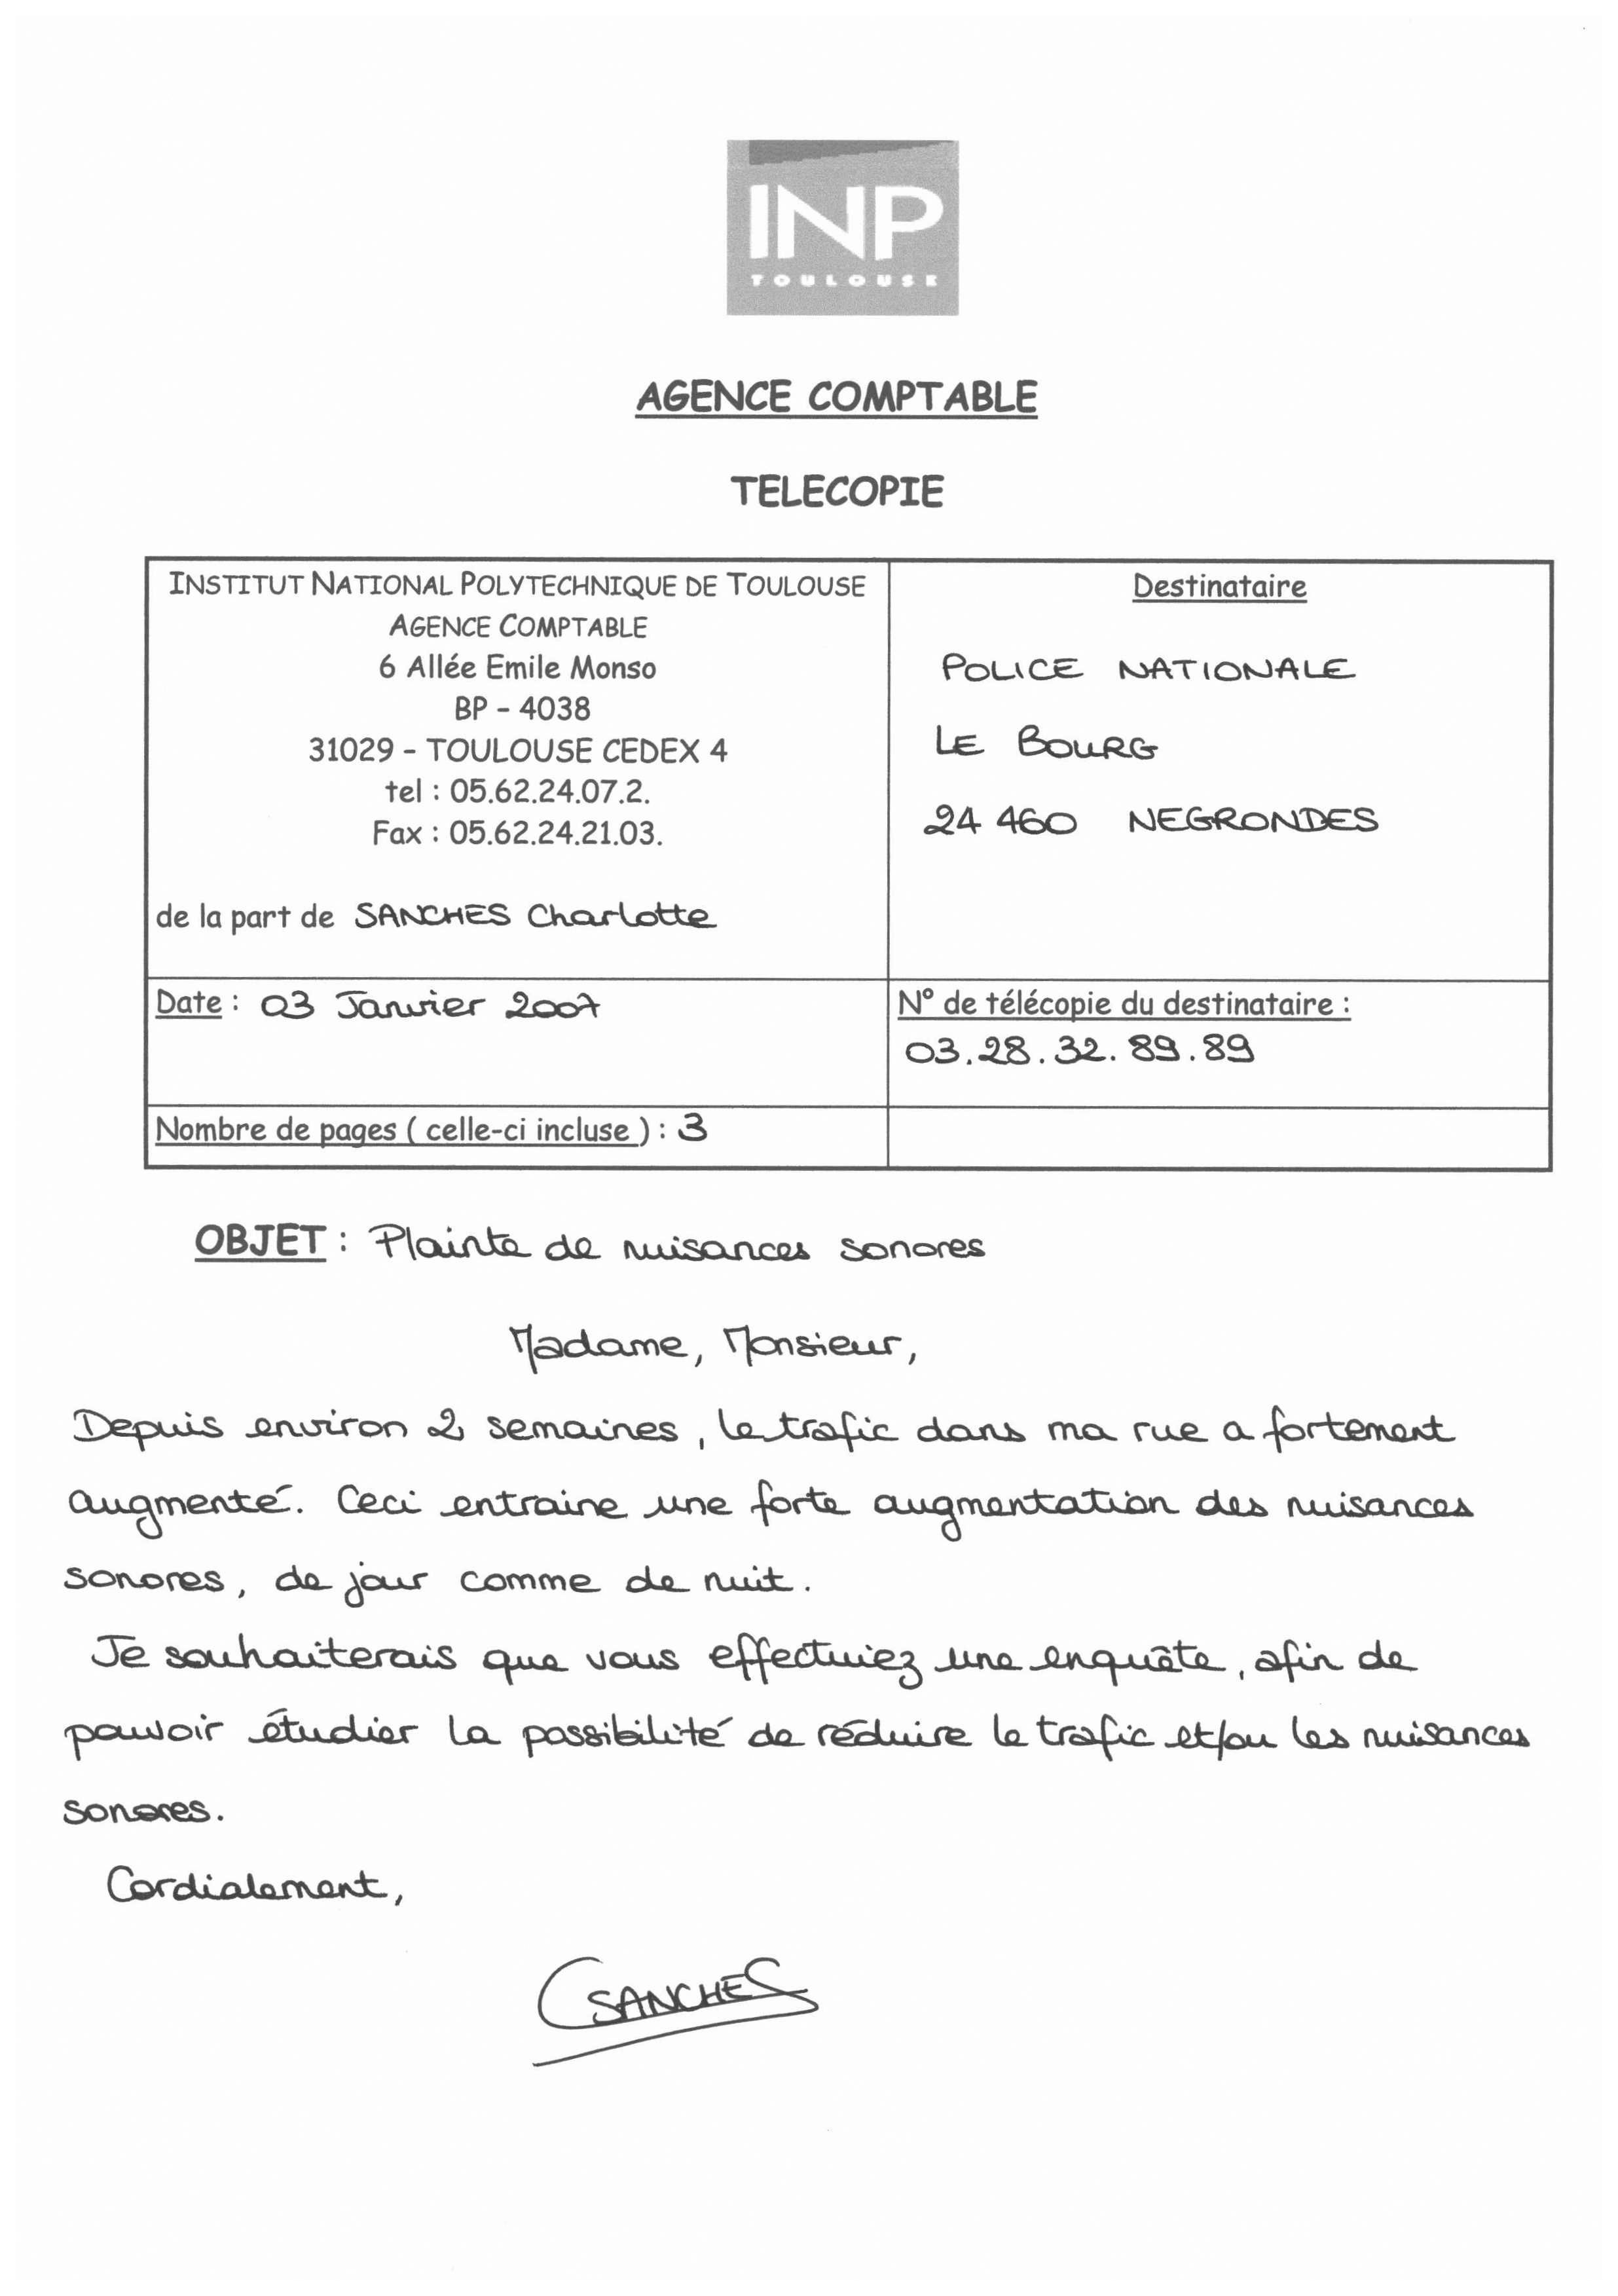 INP
TOULOUSE
AGENCE COMPTABLE
TELECOPIE
INSTITUT NATIONAL POLYTECHNIQUE DE TOULOUSE
AGENCE COMPTABLE
6 Allée Emile Monso
BP - 4038
31029 - TOULOUSE CEDEX 4
tel : 05.62.24.07.2.
Fax : 05.62.24.21.03.
de la part de SANCHES Charlotte
Destinataire
POLICE NATIONALE
LE BOURG
24 460 NEGRONDES
Date : 03 Janvier 2007
N° de télécopie du destinataire :
03.28.32.89.89
Nombre de pages ( celle-ci incluse ) : 3
OBJET : Plainte de nuisances sonores
Madame, Monsieur,
Depuis environ 2 semaines, le trafic dans ma rue a fortement
augmenté. Ceci entraine une forte augmentation des nuisances
sonores, de jour comme de nuit.
Je souhaiterais que vous effectuiez une enquête, afin de
pouvoir étudier la possibilité de réduire le trafic et/ou les nuisances
sonores.
Cordialement,
CSANCHES